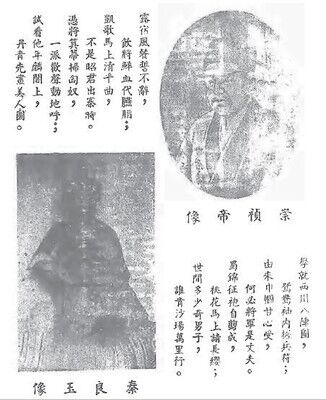 崇禎帝像
學就西川八陣圖，
鴛鴦袖內握兵符；
由來巾幗甘心受，
何必將軍是丈夫。
蜀錦征袍自剪成，
桃花馬上請長纓；
世間多少奇男子，
誰肯沙場萬里行。
露宿風餐誓不辭，
飲將鮮血代臙脂；
凱歌馬上清平曲，
不是昭君出塞時。
憑將箕帚掃匈奴，
一派歡聲動地呼；
試看他年麟閣上，
丹青先畫美人圖。
秦良玉像